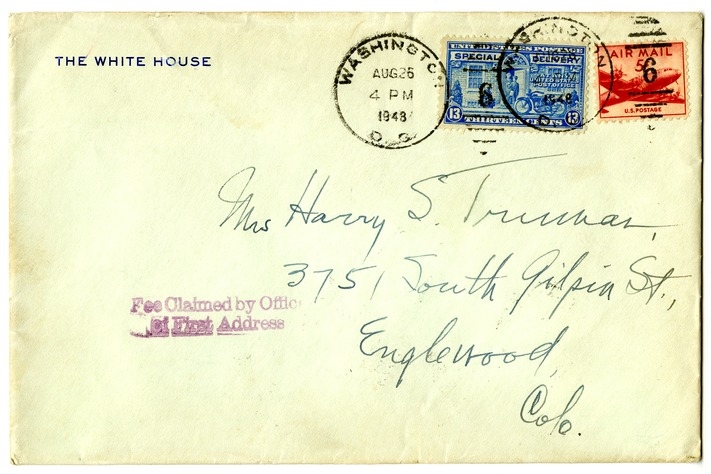 THE WHITE HOUSE
WASHINGTON
AUG 26
4 PM
1948
D.C.
UNITED STATES POSTAGE
SPECIAL DELIVERY
AT ANY
UNITED STATES
POST OFFICE
13
13
THIRTEEN CENTS
6
WASHINGTON
1948
AIR MAIL
5¢
6
U.S. POSTAGE
Mrs Harry S. Truman,
3751 South Gilpin St.,
Englewood,
Colo.
Fee Claimed by Offic
of First Address